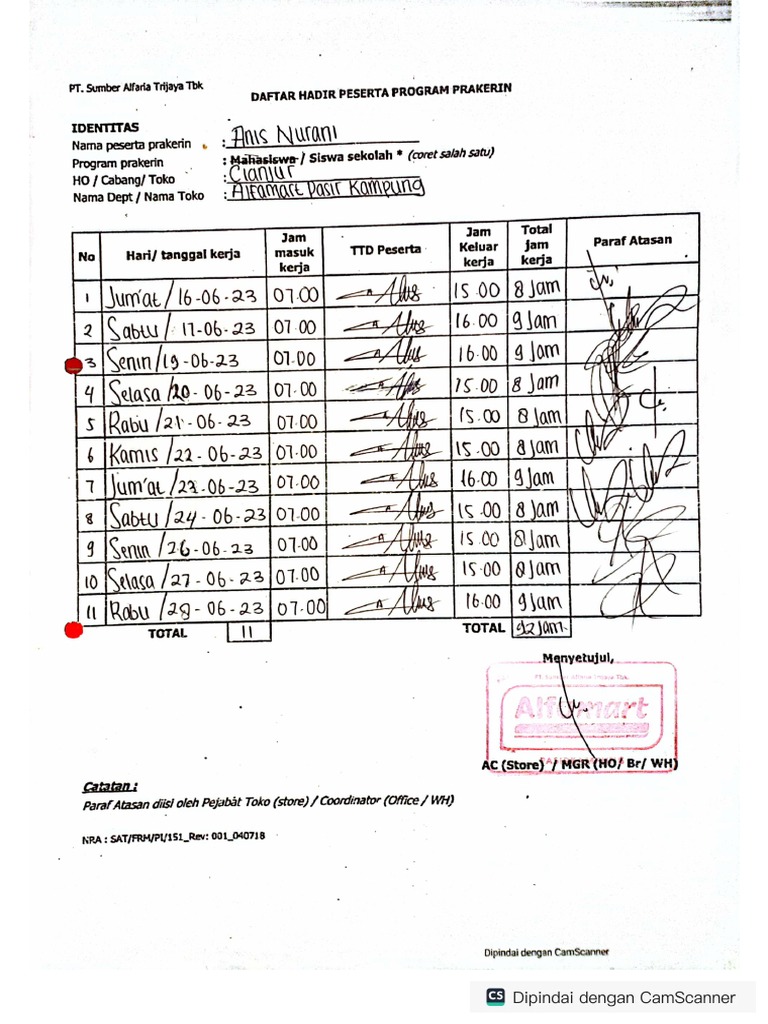 PT. Sumber Alfaria Trijaya Tbk
DAFTAR HADIR PESERTA PROGRAM PRAKERIN
IDENTITAS
Nama peserta prakerin : Anis Nurani
Program prakerin : Mahasiswa / Siswa sekolah * (coret salah satu)
HO / Cabang/ Toko : Cianjur
Nama Dept / Nama Toko : Alfamart Pasir Kampung
No Hari/ tanggal kerja Jam masuk kerja TTD Peserta Jam Keluar kerja Total jam kerja Paraf Atasan
1 Jum'at / 16-06-23 07.00 15.00 8 Jam
2 Sabtu / 17-06-23 07.00 16.00 9 Jam
3 Senin / 19-06-23 07.00 16.00 9 Jam
4 Selasa / 20-06-23 07.00 15.00 8 Jam
5 Rabu / 21-06-23 07.00 15.00 8 Jam
6 Kamis / 22-06-23 07.00 15.00 8 Jam
7 Jum'at / 23-06-23 07.00 16.00 9 Jam
8 Sabtu / 24-06-23 07.00 15.00 8 Jam
9 Senin / 26-06-23 07.00 15.00 8 Jam
10 Selasa / 27-06-23 07.00 15.00 8 Jam
11 Rabu / 28-06-23 07.00 16.00 9 Jam
TOTAL 11 TOTAL 92 Jam
Menyetujui,
Alfamart
AC (Store) / MGR (HO/ Br/ WH)
Catatan :
Paraf Atasan diisi oleh Pejabat Toko (store) / Coordinator (Office / WH)
NRA : SAT/FRM/PI/151_Rev: 001_040718
Dipindai dengan CamScanner
CS Dipindai dengan CamScanner